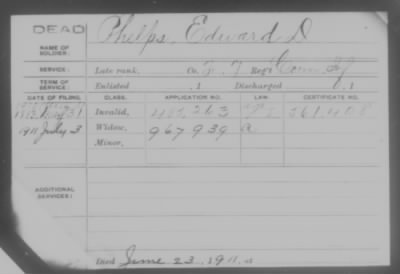 DEAD
Phelps, Edward D
NAME OF
SOLDIER:
SERVICE: Late rank, Co. F, 7 Reg't Conn Inf
TERM OF
SERVICE: Enlisted , 1 Discharged , 1
DATE OF FILING. CLASS. APPLICATION NO. LAW. CERTIFICATE NO.
31 Invalid, 263
1911 July 3 Widow, 967939 a
Minor,
ADDITIONAL
SERVICES:
Died June 23, 1911, at